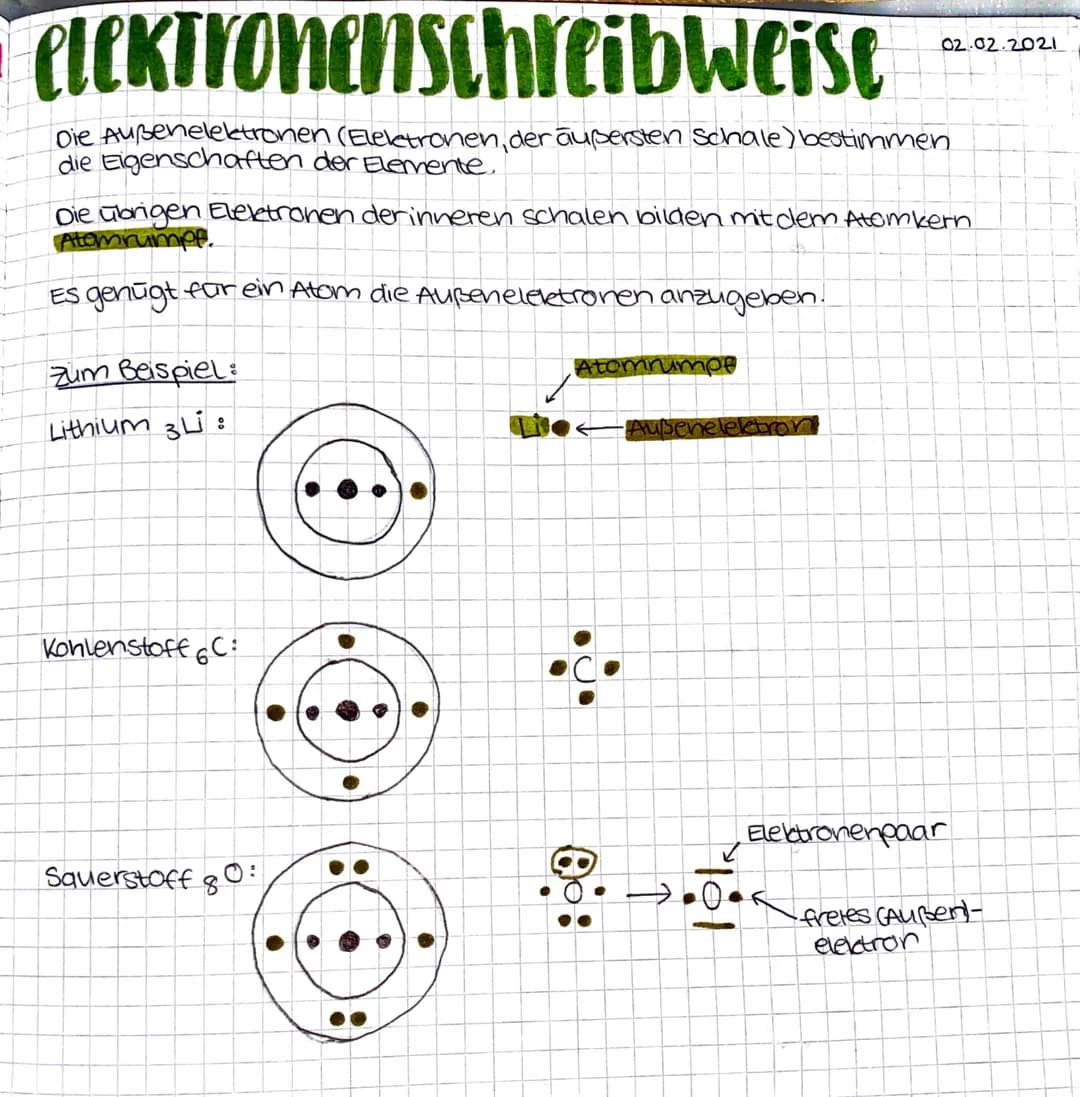 elektronenschreibweise
02.02.2021
Die Außenelektronen (Elektronen, der äußersten Schale) bestimmen
die Eigenschaften der Elemente.
Die übrigen Elektronen der inneren schalen bilden mit dem Atomkern
Atomrumpf.
Es genügt für ein Atom die Außenelektronen anzugeben.
zum Beispiel:
Atomrumpf
Lithium ₃Li :
Li• ← Außenelektron
Kohlenstoff ₆C:
C
Elektronenpaar
Sauerstoff ₈O:
O → O
freies (Außen)-
elektron